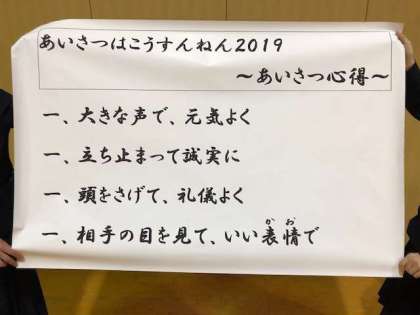 あいさつはこうすんねん2019
～あいさつ心得～
一、大きな声で、元気よく
一、立ち止まって誠実に
一、頭をさげて、礼儀よく
一、相手の目を見て、いい表情で
かお